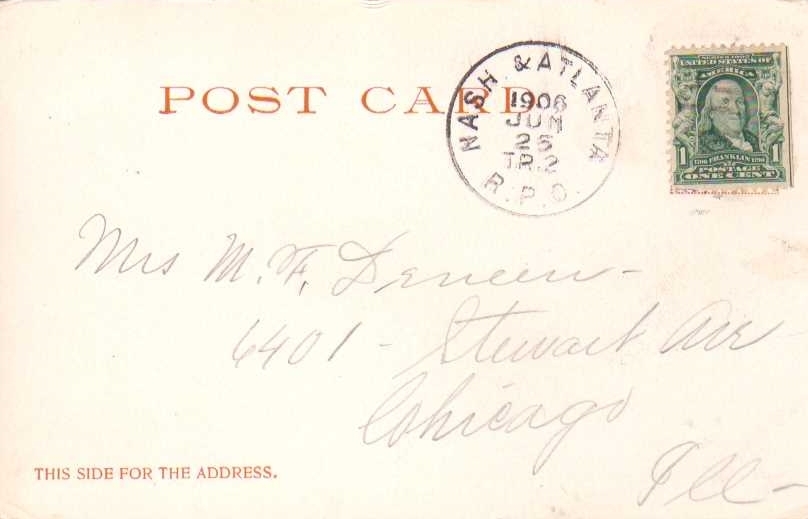 POST CARD
NASH & ATLANTA
1906
JUN
25
TR.2
R.P.O.
SERIES 1902
UNITED STATES OF
AMERICA
1706 FRANKLIN 1790
POSTAGE
1 ONE CENT 1
Mrs M. F. Deneen -
6401 - Stewart Ave
Chicago
Ill -
THIS SIDE FOR THE ADDRESS.